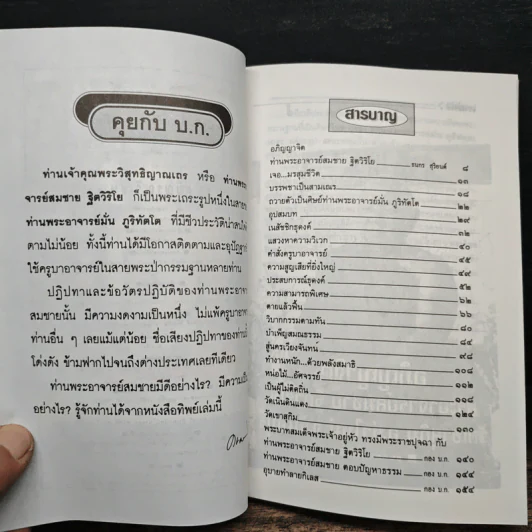 คุยกับ บ.ก.
ท่านเจ้าคุณพระวิสุทธิญาณเถร หรือ ท่านพระ
อาจารย์สมชาย ฐิตวิริโย ก็เป็นพระเถระรูปหนึ่งในสาย
ท่านพระอาจารย์มั่น ภูริทัตโต ที่มีชีวประวัติน่าสนใจ
ตามไม่น้อย ทั้งนี้ท่านได้มีโอกาสติดตามและอุปัฏฐาก
ใช้ครูบาอาจารย์ในสายพระป่ากรรมฐานหลายท่าน
ปฏิปทาและข้อวัตรปฏิบัติของท่านพระอาจารย์
สมชายนั้น มีความงดงามเป็นหนึ่ง ไม่แพ้ครูบาอาจารย์
ท่านอื่น ๆ เลยแม้แต่น้อย ชื่อเสียงปฏิปทาของท่าน
โด่งดัง ข้ามฟากไปจนถึงต่างประเทศเลยทีเดียว
ท่านพระอาจารย์สมชายมีดีอย่างไร? มีความเป็น
อย่างไร? รู้จักท่านได้จากหนังสือทิพย์เล่มนี้
สารบาญ
อภิญญาจิต
ท่านพระอาจารย์สมชาย ฐิตวิริโย ธนกร สุริยนต์ ๘
เจอ...มรสุมชีวิต ๑๓
บรรพชาเป็นสามเณร ๑๘
ถวายตัวเป็นศิษย์ท่านพระอาจารย์มั่น ภูริทัตโต ๒๒
อุปสมบท ๒๙
เนสัชชิกธุดงค์ ๓๒
แสวงหาความวิเวก ๔๐
คำสั่งครูบาอาจารย์ ๔๕
ความสูญเสียที่ยิ่งใหญ่ ๔๙
ประสบการณ์ธุดงค์ ๕๒
ความสามารถพิเศษ ๖๒
ตายแล้วฟื้น ๖๖
วิบากกรรมตามทัน ๘๐
บำเพ็ญสมณธรรม ๘๔
สู่นครเวียงจันทน์ ๙๘
ทำงานหนัก...ด้วยพลังสมาธิ ๑๐๘
หน่อไม้...อัศจรรย์ ๑๑๒
เป็นผู้ไม่ติดถิ่น ๑๑๘
วัดเนินดินแดง ๑๒๔
วัดเขาสุกิม ๑๓๐
พระบาทสมเด็จพระเจ้าอยู่หัว ทรงมีพระราชปุจฉา กับ
ท่านพระอาจารย์สมชาย ฐิตวิริโย กอง บ.ก. ๑๔๐
ท่านพระอาจารย์สมชาย ตอบปัญหาธรรม กอง บ.ก. ๑๔๔
อุบายทำลายกิเลส กอง บ.ก. ๑๕๔